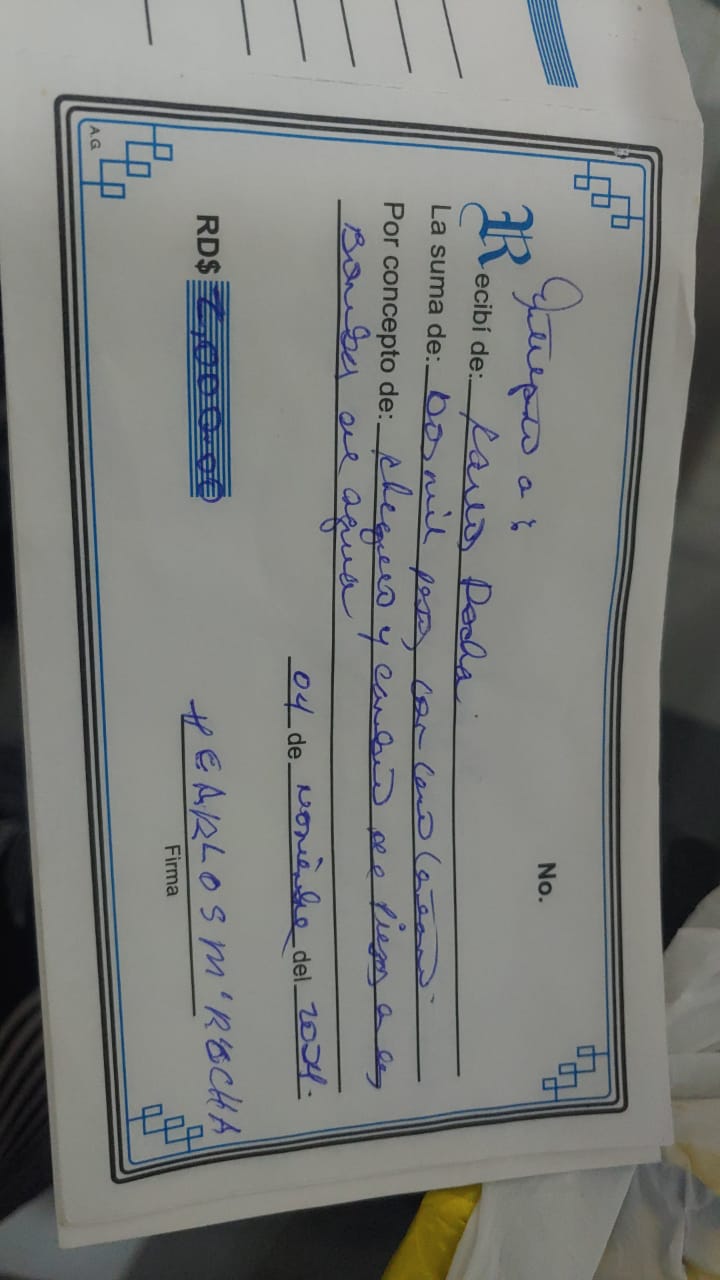 No.
Entrego a:
Recibí de: Karlos Rocha.
La suma de: Dos mil pesos con cero centavos.
Por concepto de: chequeo y cambio de piezas a las
Bombas de agua
04 de noviembre del 2024.
RD$ 2,000.00
KARLOS M. ROCHA
Firma
A.G.